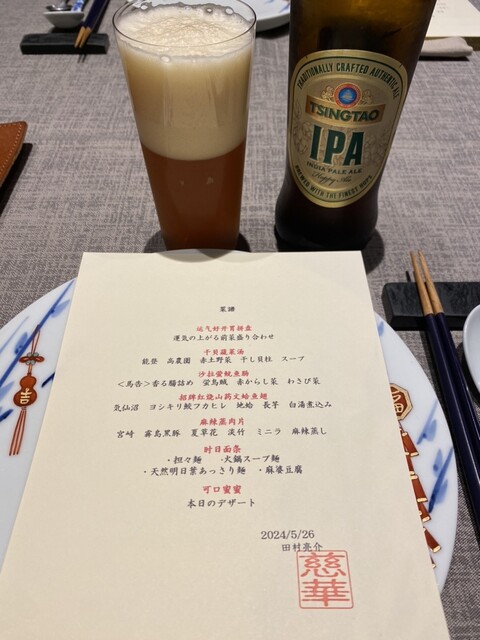 TRADITIONALLY CRAFTED AUTHENTIC ALE
TSINGTAO
IPA
INDIA PALE ALE
Hoppy Ale
BREWED WITH THE FINEST HOPS
菜譜
运气好开胃拼盘
運気の上がる前菜盛り合わせ
干贝蔬菜汤
能登 高農園 赤土野菜 干し貝柱 スープ
沙拉蛍魷魚肠
<馬告>香る腸詰め 蛍烏賊 赤からし菜 わさび菜
招牌红烧山药文蛤鱼翅
気仙沼 ヨシキリ鮫フカヒレ 地蛤 長芋 白湯煮込み
麻辣蒸肉片
宮崎 霧島黒豚 夏草花 淡竹 ミニラ 麻辣蒸し
时目面条
・担々麺 ・火鍋スープ麺
・天然明日葉あっさり麺 ・麻婆豆腐
可口蜜蜜
本日のデザート
2024/5/26
田村亮介
慈華
吉